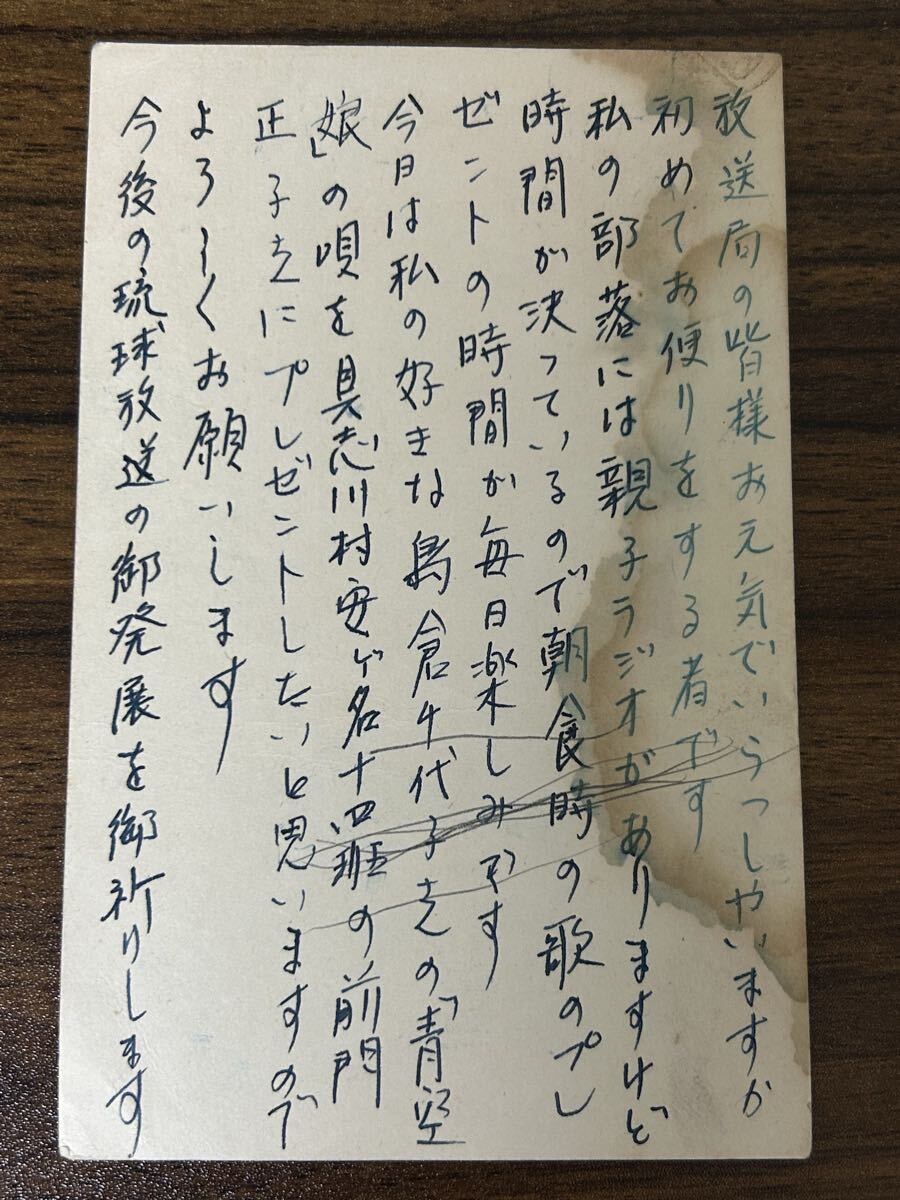 放送局の皆様お元気でいらっしやいますか
初めてお便りをする者です
私の部落には親子ラジオがありますけど
時間が決っているので朝食時の歌のプレ
ゼントの時間が毎日楽しみです
今日は私の好きな島倉千代子さんの「青空
娘」の唄を具志川村安ゲ名十四班の前門
正子さんにプレゼントしたいと思いますので
よろしくお願いします
今後の琉球放送の御発展を御祈りします